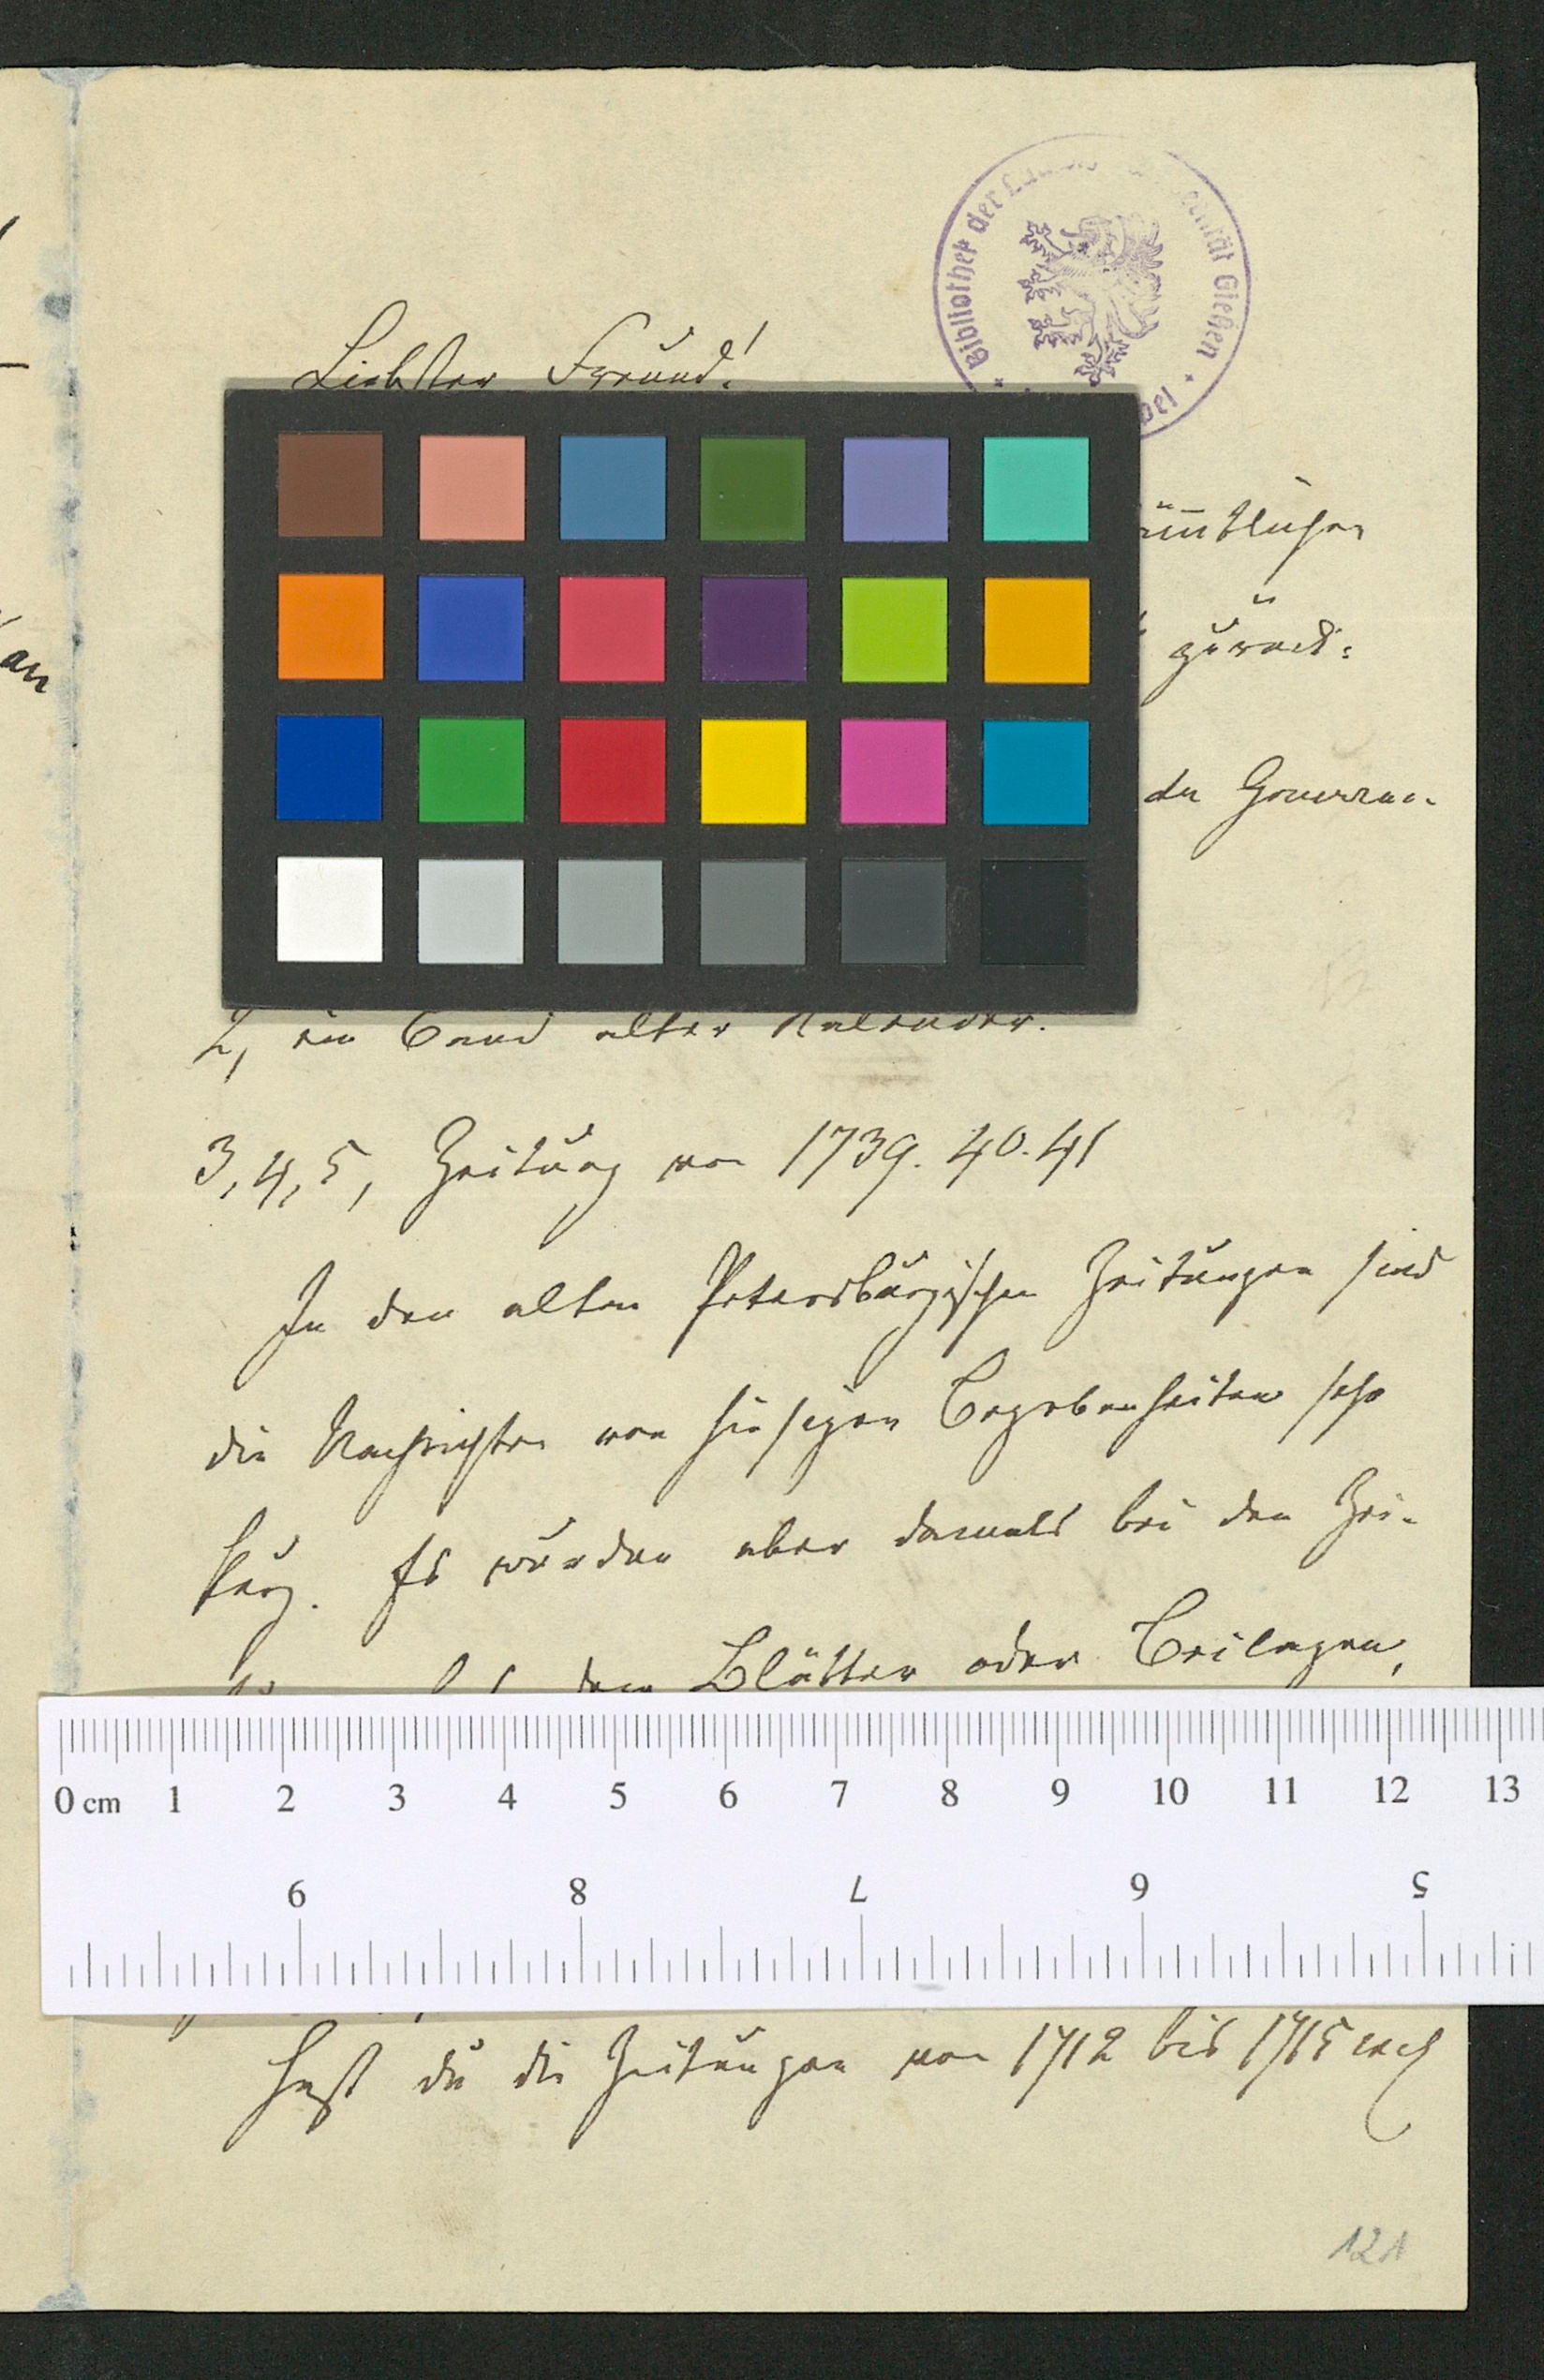 Liebster Freund!
Bibliothek der
Gießen
zurück:
du Gouverne-
2, ein Band alter Kalender.
3, 4, 5, Zeitung von 1739. 40. 41
In den alten Petersburgischen Zeitungen sind
die Nachrichten von hiesigen Begebenheiten sehr
karg. Es wurden aber damals bei den Zei-
Blätter oder Beilagen,
0 cm 1 2 3 4 5 6 7 8 9 10 11 12 13
9 8 7 6 5
Hast du die Zeitungen von 1712 bis 1715 noch
121
an